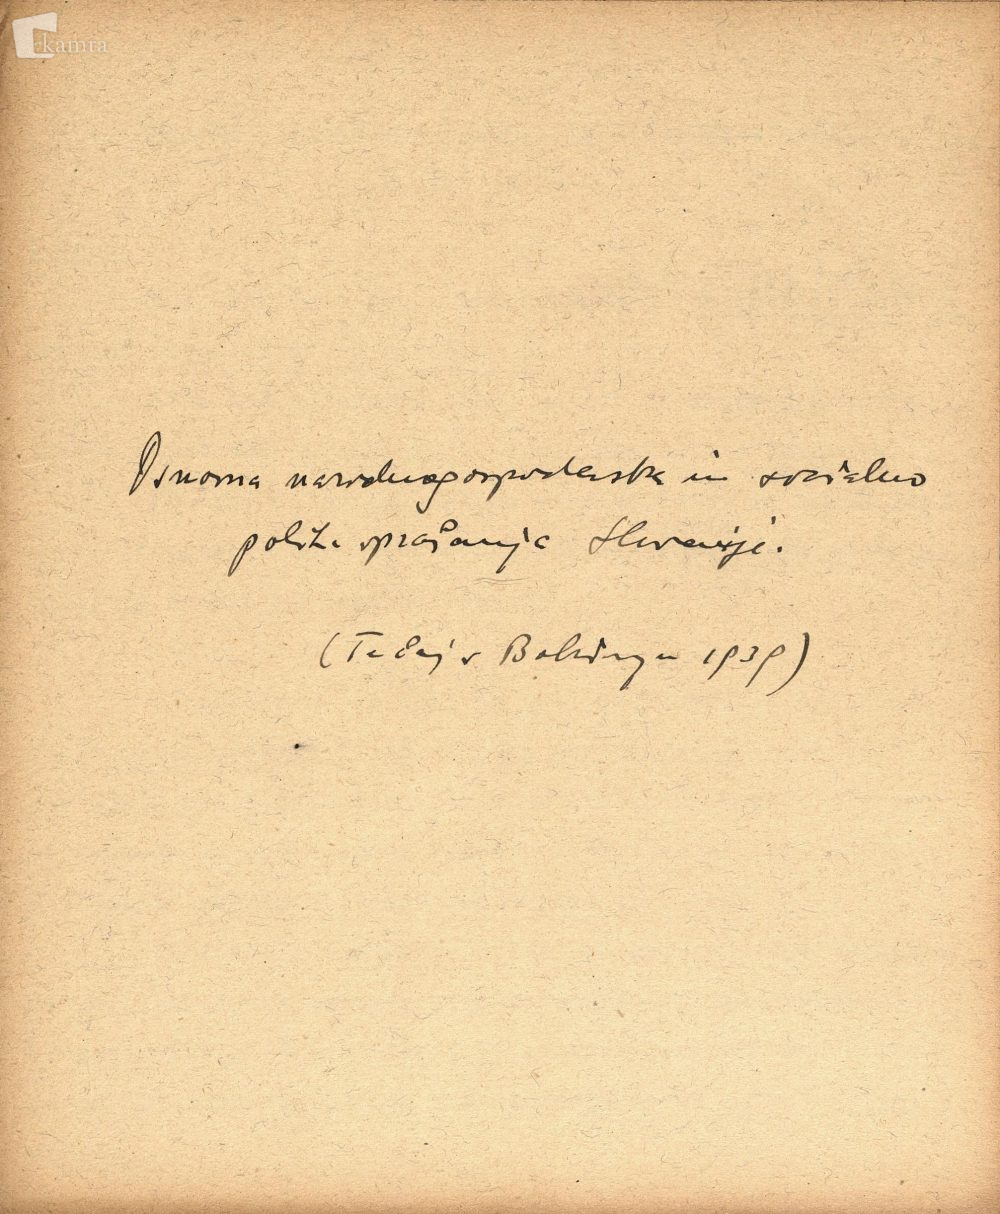 kamra
Osnovna narodnogospodarska in socialno
polit. vprašanja Slovenije.
(Tečaj v Bohinju 1939)